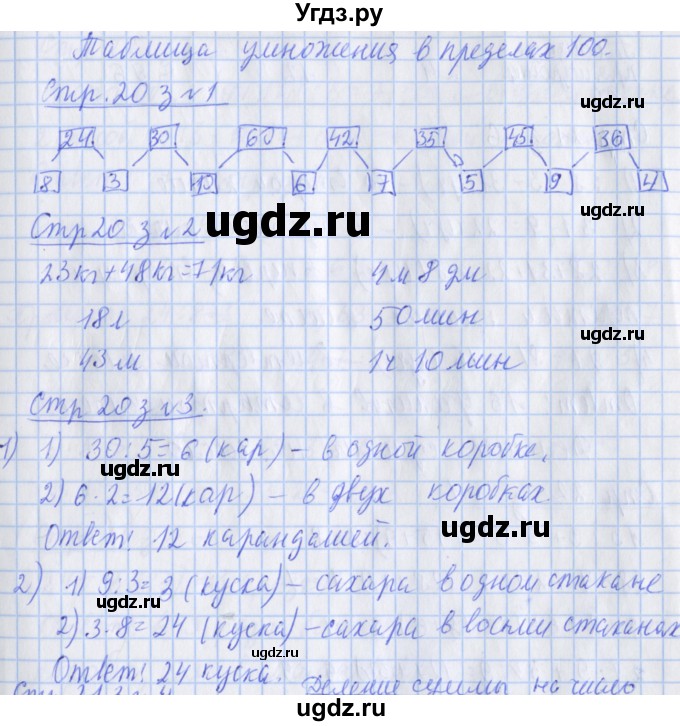 Угдз.ру
Таблица умножения в пределах 100.
Стр. 20 з №1
24 30 60 42 35 45 36
8 3 10 6 7 5 9 4
Стр 20 з №2
23кг+48кг=71кг 4м 8дм
18л 50мин
43м 1ч 10мин
Стр 20 з №3.
1) 1) 30:5=6 (кар) – в одной коробке.
2) 6·2=12(кар) – в двух коробках.
Ответ! 12 карандашей.
2) 1) 9:3=3 (куска) – сахара в одном стакане
2) 3·8=24 (куска) – сахара в восьми стаканах
Ответ! 24 куска.
Деление суммы на число
ugdz.ru
ugdz.ru
ugdz.ru
ugdz.ru
ugdz.ru
ugdz.ru
ugdz.ru
ugdz.ru
ugdz.ru
ugdz.ru
ugdz.ru